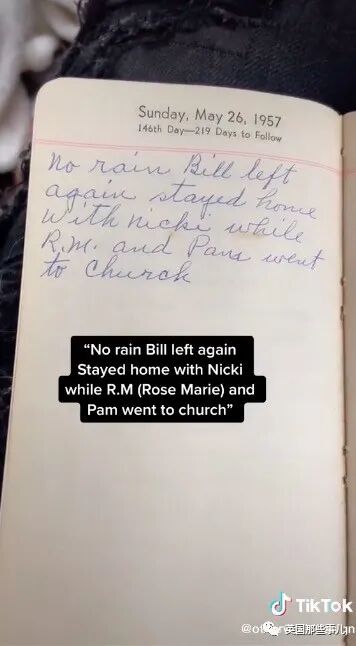 Sunday, May 26, 1957
146th Day—219 Days to Follow
No rain Bill left
again stayed home
with nicki while
R.M. and Pam went
to Church
“No rain Bill left again
Stayed home with Nicki
while R.M (Rose Marie) and
Pam went to church”
TikTok
英国那些事儿